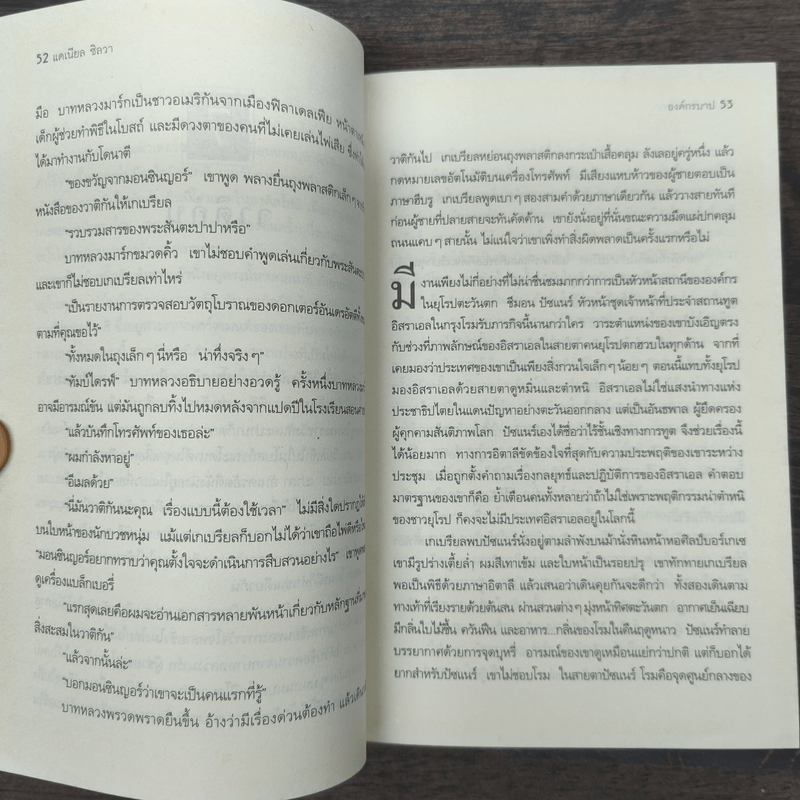 52 แดเนียล ซิลวา
มือ บาทหลวงมาร์กเป็นชาวอเมริกันจากเมืองฟิลาเดลเฟีย หน้าตา
เด็กผู้ช่วยทำพิธีในโบสถ์ และมีดวงตาของคนที่ไม่เคยเล่นไพ่เสีย
ได้มาทำงานกับโดนาตี
“ของขวัญจากมอนซินญอร์” เขาพูด พลางยื่นถุงพลาสติกเล็กๆ
หนังสือของวาติกันให้เกเบรียล
“รวบรวมสารของพระสันตะปาปาหรือ”
บาทหลวงมาร์กขมวดคิ้ว เขาไม่ชอบคำพูดเล่นเกี่ยวกับพระสันตะ
และเขาก็ไม่ชอบเกเบรียลเท่าไหร่
“เป็นรายงานการตรวจสอบวัตถุโบราณของดอกเตอร์อันเดรอัตติ
ตามที่คุณขอไว้”
“ทั้งหมดในถุงเล็กๆ นี่หรือ น่าทึ่งจริงๆ”
“ทัมป์ไดรฟ์” บาทหลวงอธิบายอย่างอวดรู้ ครั้งหนึ่งบาทหลวง
อาจมีอารมณ์ขัน แต่มันถูกลบทิ้งไปหมดหลังจากแปดปีในโรงเรียนสอน
“แล้วบันทึกโทรศัพท์ของเธอล่ะ”
“ผมกำลังหาอยู่”
“อีเมลด้วย”
“นี่มันวาติกันนะคุณ เรื่องแบบนี้ต้องใช้เวลา” ไม่มีสิ่งใดปรากฏ
บนใบหน้าของนักบวชหนุ่ม แม้แต่เกเบรียลก็บอกไม่ได้ว่าเขาถือไพ่ดีหรือ
“มอนซินญอร์อยากทราบว่าคุณตั้งใจจะดำเนินการสืบสวนอย่างไร” เขา
ดูเครื่องแบล็กเบอรี่
“แรกสุดเลยคือผมจะอ่านเอกสารหลายพันหน้าเกี่ยวกับหลักฐาน
สิ่งสะสมในวาติกัน”
“แล้วจากนั้นล่ะ”
“บอกมอนซินญอร์ว่าเขาจะเป็นคนแรกที่รู้”
บาทหลวงพรวดพราดยืนขึ้น อ้างว่ามีเรื่องด่วนต้องทำ แล้ว
องค์กรบาป 53
วาติกันไป เกเบรียลหย่อนถุงพลาสติกลงกระเป๋าเสื้อคลุม ลังเลอยู่ครู่หนึ่ง แล้ว
กดหมายเลขอัตโนมัติบนเครื่องโทรศัพท์ มีเสียงแหบห้าวของผู้ชายตอบเป็น
ภาษาฮีบรู เกเบรียลพูดเบาๆ สองสามคำด้วยภาษาเดียวกัน แล้ววางสายทันที
ก่อนผู้ชายที่ปลายสายจะทันคัดค้าน เขายังนั่งอยู่ที่นั่นขณะความมืดแผ่ปกคลุม
ถนนแคบๆ สายนั้น ไม่แน่ใจว่าเขาเพิ่งทำสิ่งผิดพลาดเป็นครั้งแรกหรือไม่
มีงานเพียงไม่กี่อย่างที่ไม่น่าชื่นชมมากกว่าการเป็นหัวหน้าสถานีขององค์กร
ในยุโรปตะวันตก ชีมอน ปัซแนร์ หัวหน้าชุดเจ้าหน้าที่ประจำสถานทูต
อิสราเอลในกรุงโรมรับภารกิจนี้นานกว่าใคร วาระตำแหน่งของเขาบังเอิญตรง
กับช่วงที่ภาพลักษณ์ของอิสราเอลในสายตาคนยุโรปตกฮวบในทุกด้าน จากที่
เคยมองว่าประเทศของเขาเป็นเพียงสิ่งกวนใจเล็กๆ น้อยๆ ตอนนี้แทบทั้งยุโรป
มองอิสราเอลด้วยสายตาดูหมิ่นและตำหนิ อิสราเอลไม่ใช่แสงนำทางแห่ง
ประชาธิปไตยในแดนปัญหาอย่างตะวันออกกลาง แต่เป็นอันธพาล ผู้ยึดครอง
ผู้คุกคามสันติภาพโลก ปัซแนร์เองได้ชื่อว่าไร้ชั้นเชิงทางการทูต จึงช่วยเรื่องนี้
ได้น้อยมาก ทางการอิตาลีขัดข้องใจที่สุดกับความประพฤติของเขาระหว่าง
ประชุม เมื่อถูกตั้งคำถามเรื่องกลยุทธ์และปฏิบัติการของอิสราเอล คำตอบ
มาตรฐานของเขาก็คือ ย้ำเตือนคนทั้งหลายว่าถ้าไม่ใช่เพราะพฤติกรรมน่าตำหนิ
ของชาวยุโรป ก็คงจะไม่มีประเทศอิสราเอลอยู่ในโลกนี้
เกเบรียลพบปัซแนร์นั่งอยู่ตามลำพังบนม้านั่งหินหน้าหอศิลป์บอร์เกเซ
เขามีรูปร่างเตี้ยล่ำ ผมสีเทาเข้ม และใบหน้าเป็นรอยปรุ เขาทักทายเกเบรียล
พอเป็นพิธีด้วยภาษาอิตาลี แล้วเสนอว่าเดินคุยกันจะดีกว่า ทั้งสองเดินตาม
ทางเท้าที่เรียงรายด้วยต้นสน ผ่านสวนต่างๆ มุ่งหน้าทิศตะวันตก อากาศเย็นเฉียบ
มีกลิ่นใบไม้ชื้น ควันฟืน และอาหาร...กลิ่นของโรมในคืนฤดูหนาว ปัซแนร์ทำลาย
บรรยากาศด้วยการจุดบุหรี่ อารมณ์ของเขาดูเหมือนแย่กว่าปกติ แต่ก็บอกได้
ยากสำหรับปัซแนร์ เขาไม่ชอบโรม ในสายตาปัซแนร์ โรมคือจุดศูนย์กลางของ